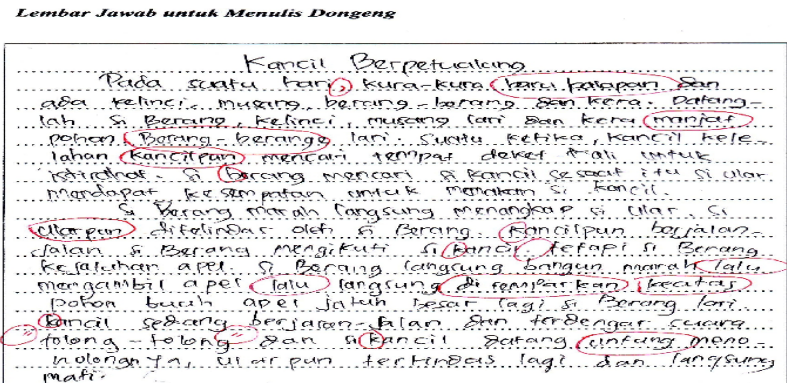 Lembar Jawab untuk Menulis Dongeng
Kancil Berpetualang
Pada suatu hari, kura-kura baru balapan dan
ada kelinci, musang, berang-berang dan kera. Datang-
lah Si Berang, kelinci, musang lari dan kera manjat
pohon, Berang berange lari. Suatu ketika, kancil kele-
lahan kancilpun mencari tempat deket kali untuk
istirahat. Si Berang mencari si kancil sesaat itu si ular
mendapat kesempatan untuk memakan si kancil.
Si Berang marah langsung menangkap si ular. Si
Ularpun ditelindas oleh si Berang. Kancilpun berjalan-
Jalan si Berang mengikuti si kancil, tetapi si Berang
kejatuhan apel. Si Berang langsung bangun marah lalu
mengambil apel lalu langsung di lemparkan keatas
pohon buah apel jatuh besar lagi si Berang lari
kancil sedang berjalan-jalan dan terdengar suara
"tolong-tolong" dan si kancil datang untung meno-
nolongnya, ular pun tertindas lagi dan langsung
mati.